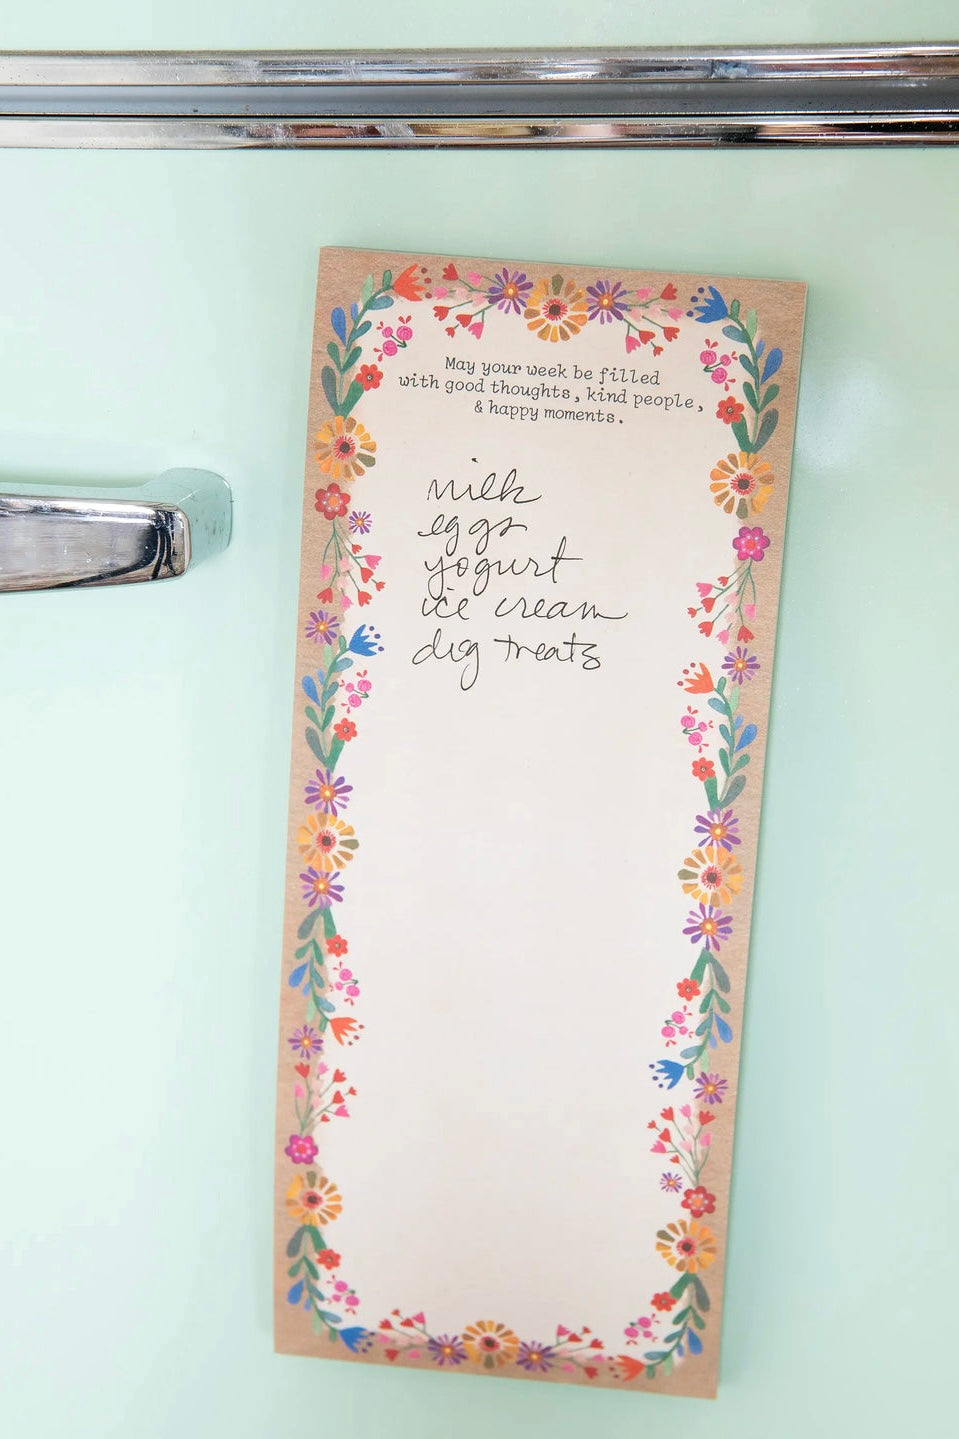 May your week be filled
with good thoughts, kind people,
& happy moments.
milk
eggs
yogurt
ice cream
dog treats